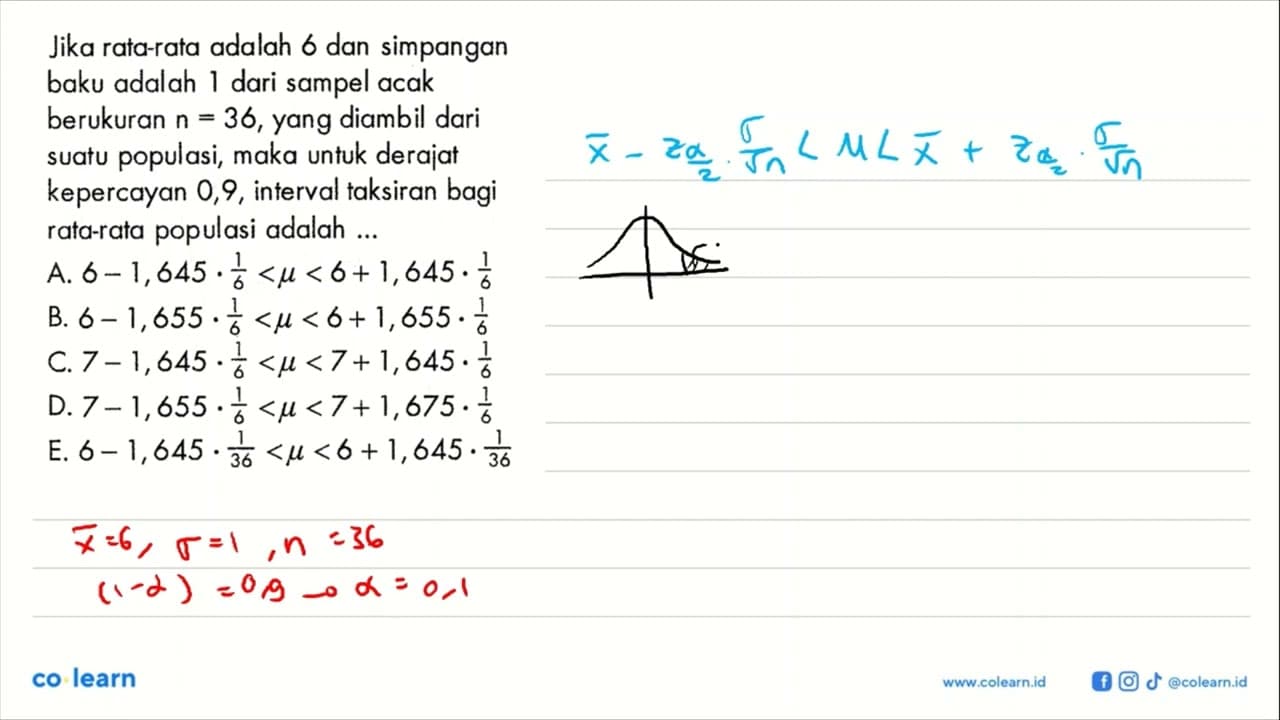 Jika rata-rata adalah 6 dan simpangan
baku adalah 1 dari sampel acak
berukuran n = 36, yang diambil dari
suatu populasi, maka untuk derajat
kepercayan 0,9, interval taksiran bagi
rata-rata populasi adalah ...
A. 6 – 1,645 · 1/6 < μ < 6 + 1,645 · 1/6
B. 6 – 1,655 · 1/6 < μ < 6 + 1,655 · 1/6
C. 7 – 1,645 · 1/6 < μ < 7 + 1,645 · 1/6
D. 7 – 1,655 · 1/6 < μ < 7 + 1,675 · 1/6
E. 6 – 1,645 · 1/36 < μ < 6 + 1,645 · 1/36
x̄ = 6, σ = 1, n = 36
(1-α) = 0,9 → α = 0,1
x̄ - z α/2 · σ/√n < μ < x̄ + z α/2 · σ/√n
co learn
www.colearn.id
@colearn.id